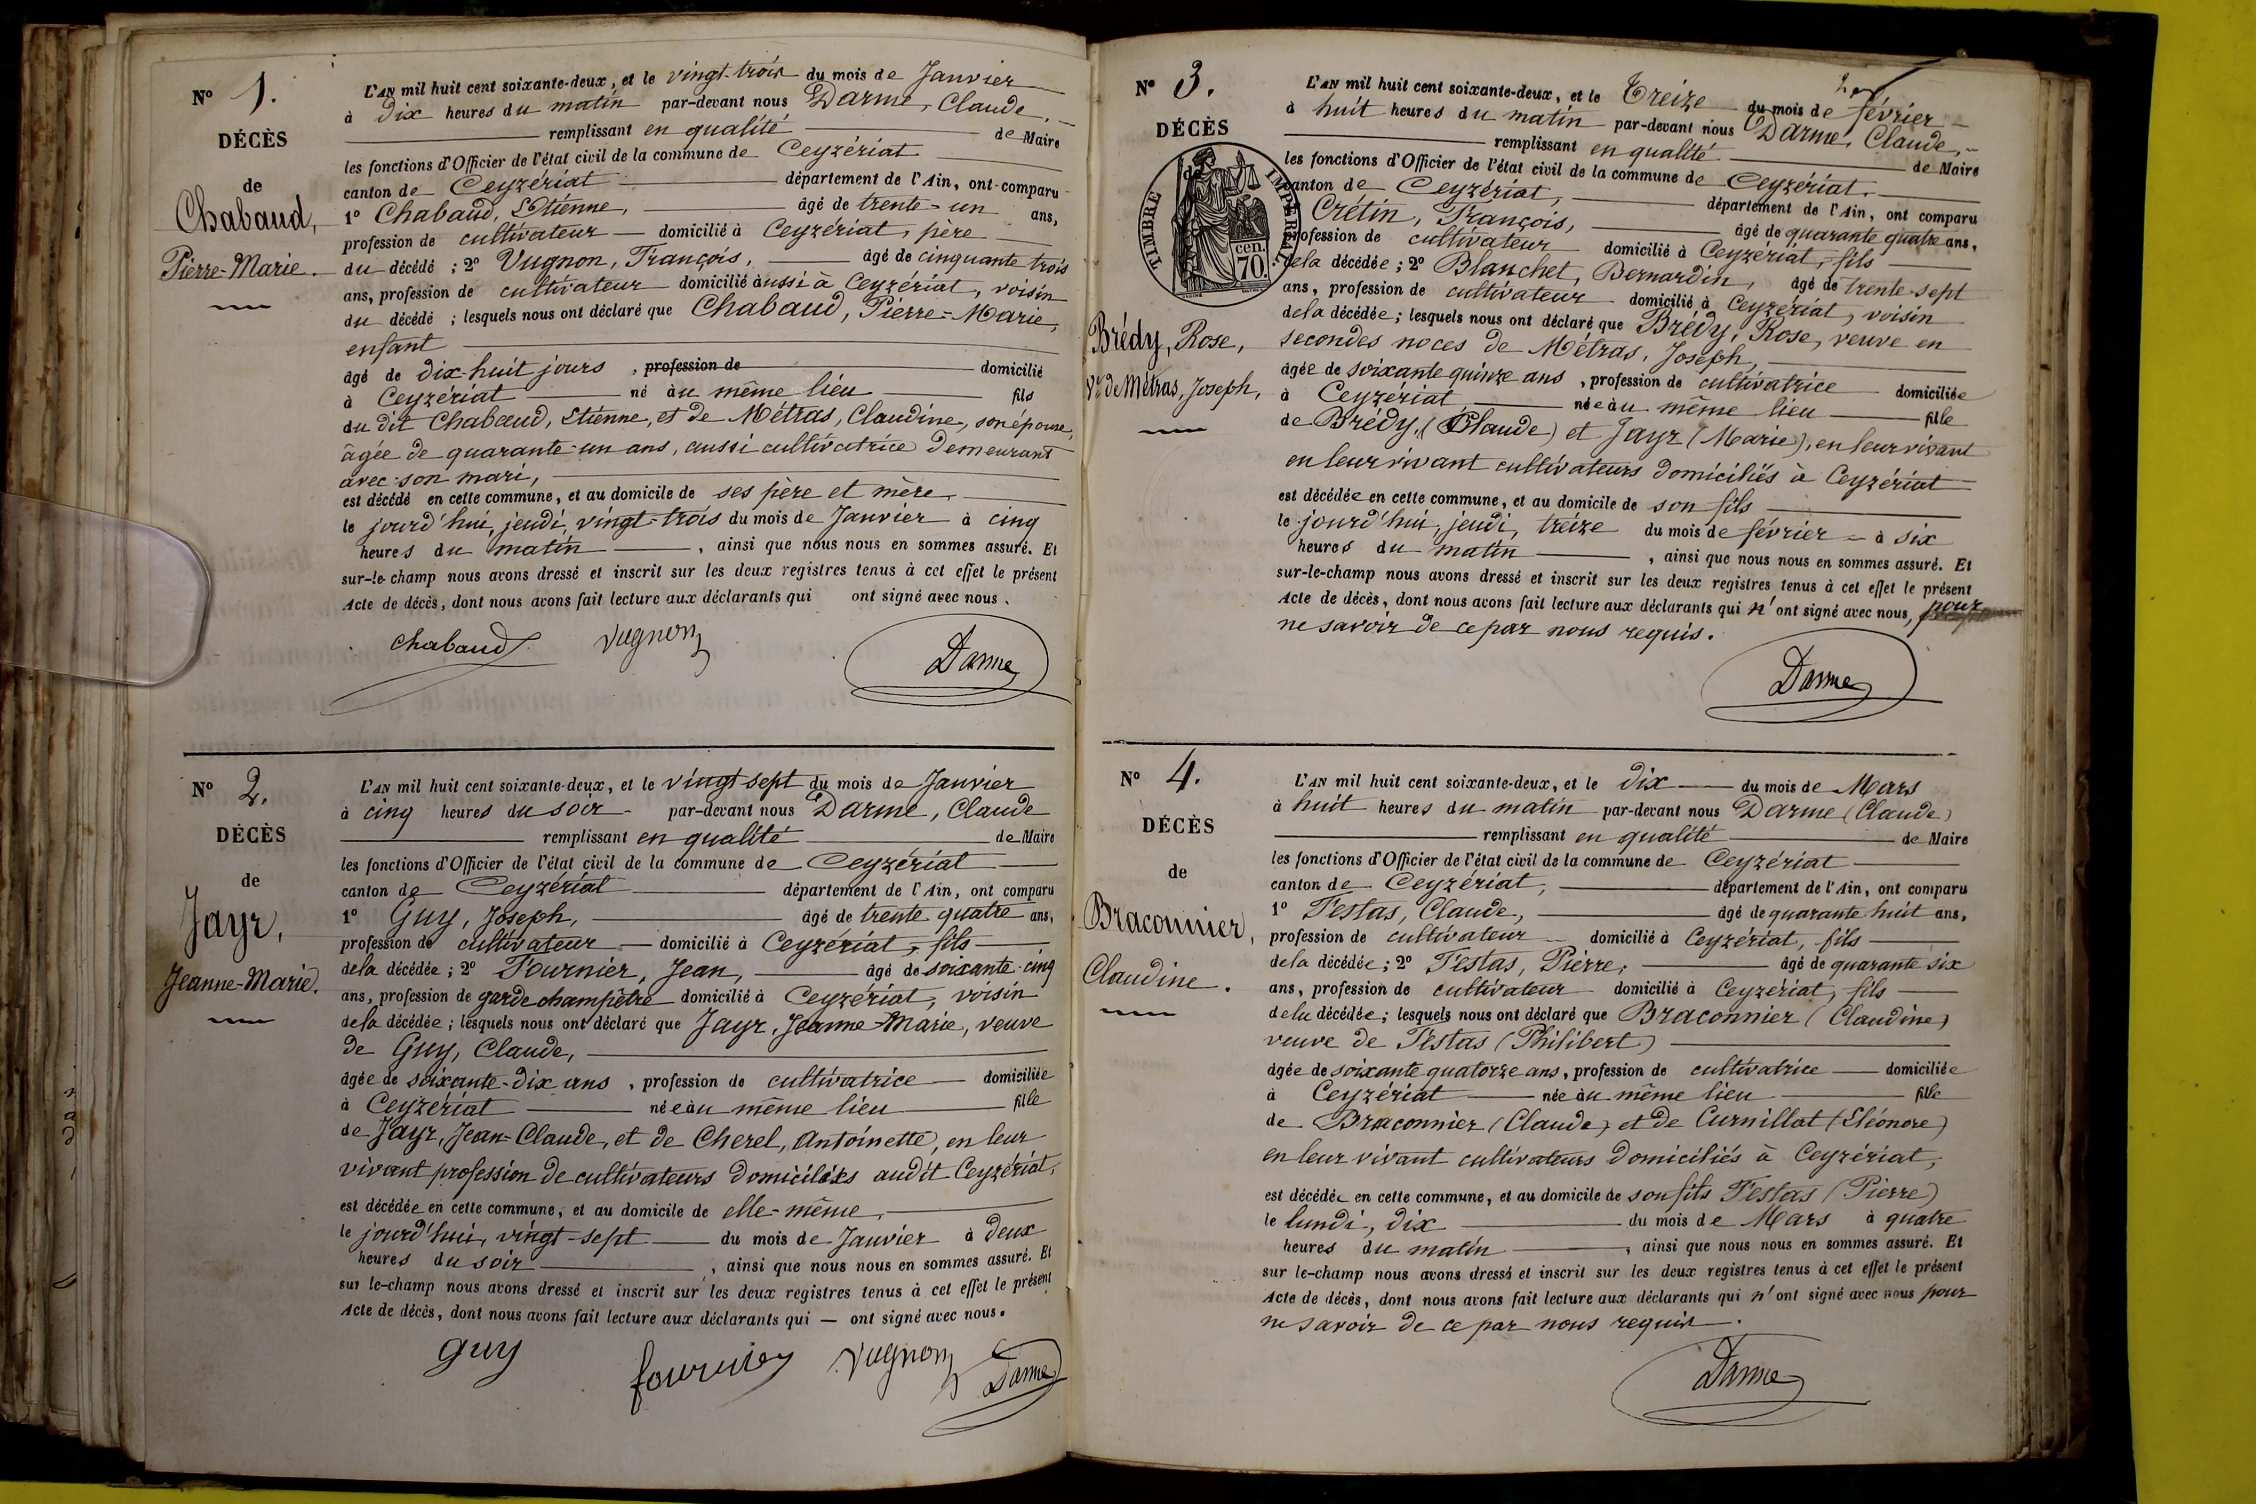 N° 1.
DÉCÈS
de
Chabaud,
Pierre-Marie.
L'AN mil huit cent soixante-deux, et le vingt-trois du mois de Janvier
à dix heures du matin par-devant nous Darme, Claude,
remplissant en qualité de Maire
les fonctions d'Officier de l'état civil de la commune de Ceyzériat
canton de Ceyzériat département de l'Ain, ont comparu
1° Chabaud, Etienne, âgé de trente-un ans,
profession de cultivateur domicilié à Ceyzériat, père
du décédé ; 2° Vugnon, François, âgé de cinquante trois
ans, profession de cultivateur domicilié aussi à Ceyzériat, voisin
du décédé ; lesquels nous ont déclaré que Chabaud, Pierre-Marie,
enfant
âgé de dix-huit jours , profession de domicilié
à Ceyzériat né au même lieu fils
du dit Chabaud, Etienne, et de Métras, Claudine, son épouse,
âgée de quarante-un ans, aussi cultivatrice demeurant
avec son mari,
est décédé en cette commune, et au domicile de ses père et mère
le jourd'hui, jeudi, vingt-trois du mois de Janvier à cinq
heures du matin , ainsi que nous nous en sommes assuré. Et
sur-le-champ nous avons dressé et inscrit sur les deux registres tenus à cet effet le présent
Acte de décès, dont nous avons fait lecture aux déclarants qui ont signé avec nous.
Chabaud Vugnon Darme
N° 2.
DÉCÈS
de
Jayr,
Jeanne-Marie.
L'AN mil huit cent soixante-deux, et le vingt-sept du mois de Janvier
à cinq heures du soir par-devant nous Darme, Claude
remplissant en qualité de Maire
les fonctions d'Officier de l'état civil de la commune de Ceyzériat
canton de Ceyzériat département de l'Ain, ont comparu
1° Guy, Joseph, âgé de trente quatre ans,
profession de cultivateur domicilié à Ceyzériat, fils
de la décédée ; 2° Fournier, Jean, âgé de soixante-cinq
ans, profession de garde champêtre domicilié à Ceyzériat, voisin
de la décédée ; lesquels nous ont déclaré que Jayr, Jeanne-Marie, veuve
de Guy, Claude,
âgée de soixante-dix ans , profession de cultivatrice domiciliée
à Ceyzériat née au même lieu fille
de Jayr, Jean-Claude, et de Cherel, Antoinette, en leur
vivant profession de cultivateurs domiciliés audit Ceyzériat,
est décédée en cette commune, et au domicile de elle-même,
le jourd'hui, vingt-sept du mois de Janvier à deux
heures du soir , ainsi que nous nous en sommes assuré. Et
sur le-champ nous avons dressé et inscrit sur les deux registres tenus à cet effet le présent
Acte de décès, dont nous avons fait lecture aux déclarants qui — ont signé avec nous.
Guy fournier Vugnon Darme
N° 3.
DÉCÈS
de
TIMBRE IMPÉRIAL
cen.
70.
Brédy, Rose,
Ve de Métras, Joseph,
L'AN mil huit cent soixante-deux, et le Treize du mois de février
à huit heures du matin par-devant nous Darme, Claude,
remplissant en qualité de Maire
les fonctions d'Officier de l'état civil de la commune de Ceyzériat.
canton de Ceyzériat, département de l'Ain, ont comparu
Crétin, François, âgé de quarante quatre ans,
profession de cultivateur domicilié à Ceyzériat, fils
de la décédée ; 2° Blanchet, Bernardin, âgé de trente-sept
ans, profession de cultivateur domicilié à Ceyzériat, voisin
de la décédée ; lesquels nous ont déclaré que Brédy, Rose, veuve en
secondes noces de Métras, Joseph,
âgée de soixante quinze ans , profession de cultivatrice domiciliée
à Ceyzériat née au même lieu fille
de Brédy, (Claude) et Jayr (Marie), en leur vivant
en leur vivant cultivateurs domiciliés à Ceyzériat
est décédée en cette commune, et au domicile de son fils
le jourd'hui, jeudi, treize du mois de février à six
heures du matin , ainsi que nous nous en sommes assuré. Et
sur-le-champ nous avons dressé et inscrit sur les deux registres tenus à cet effet le présent
Acte de décès, dont nous avons fait lecture aux déclarants qui n'ont signé avec nous, pour
ne savoir de ce par nous requis.
Darme
N° 4.
DÉCÈS
de
Braconnier,
Claudine.
L'AN mil huit cent soixante-deux, et le dix du mois de Mars
à huit heures du matin par-devant nous Darme (Claude)
remplissant en qualité de Maire
les fonctions d'Officier de l'état civil de la commune de Ceyzériat
canton de Ceyzériat, département de l'Ain, ont comparu
1° Festas, Claude, âgé de quarante huit ans,
profession de cultivateur domicilié à Ceyzériat, fils
de la décédée ; 2° Festas, Pierre, âgé de quarante six
ans, profession de cultivateur domicilié à Ceyzériat, fils
de la décédée ; lesquels nous ont déclaré que Braconnier (Claudine)
veuve de Festas (Philibert)
âgée de soixante quatorze ans, profession de cultivatrice domiciliée
à Ceyzériat née au même lieu fille
de Braconnier (Claude) et de Curnillat (Eléonore)
en leur vivant cultivateurs domiciliés à Ceyzériat,
est décédée en cette commune, et au domicile de son fils Festas (Pierre)
le lundi, dix du mois de Mars à quatre
heures du matin , ainsi que nous nous en sommes assuré. Et
sur le-champ nous avons dressé et inscrit sur les deux registres tenus à cet effet le présent
Acte de décès, dont nous avons fait lecture aux déclarants qui n'ont signé avec nous pour
ne savoir de ce par nous requis.
Darme